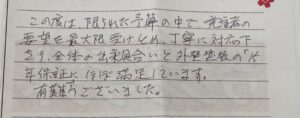 この度は、限られた予算の中で、発注者の
要望を最大限受けとめ、丁寧に対応下
さり、全体の出来具合いと外壁塗装の「15
年保証」にほぼ満足しています。
有難うございました。